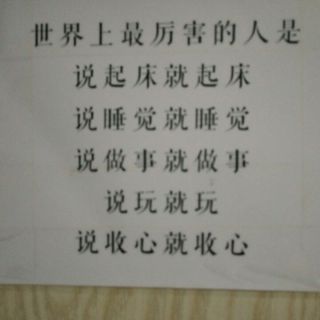 世界上最厉害的人是
说起床就起床
说睡觉就睡觉
说做事就做事
说玩就玩
说收心就收心